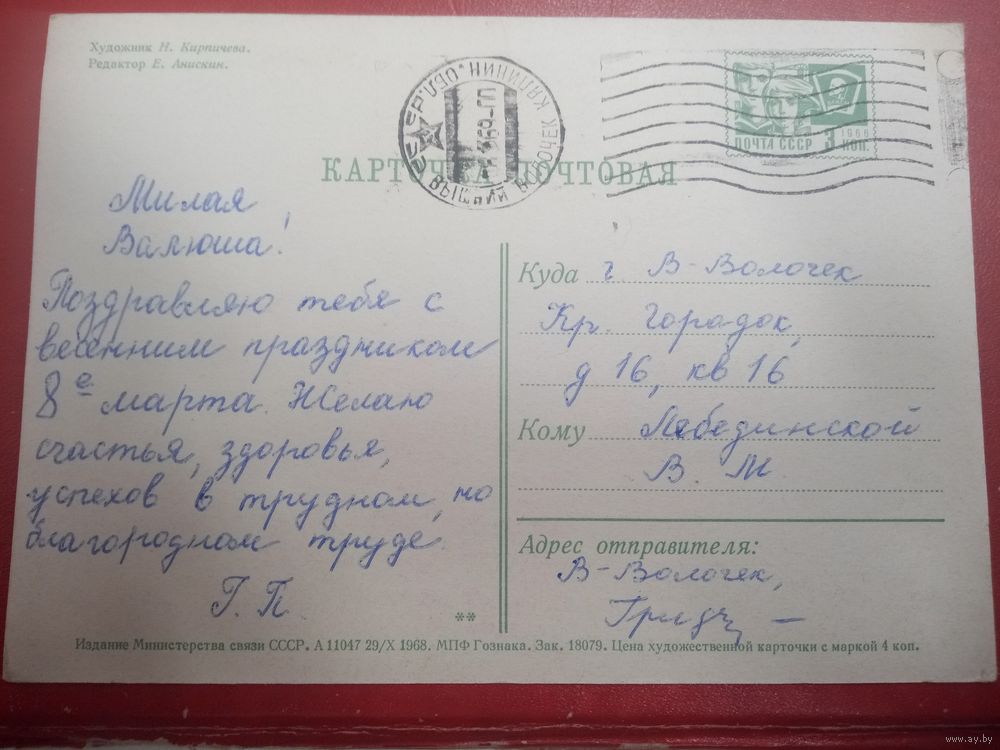 Художник Н. Кирпичева.
Редактор Е. Анискин.
ВЫШНИЙ ВОЛОЧЕК КАЛИНИН. ОБЛ.
ПОЧТА СССР 3 КОП.
1966
КАРТОЧКА ПОЧТОВАЯ
Милая
Валюша!
Поздравляю тебя с
весенним праздником
8е марта. Желаю
счастья, здоровья,
успехов в трудном, но
благородном труде.
Г. П
Куда г В-Волочек
Кр. Городок,
д 16, кв 16
Кому Лебединской
В. М.
Адрес отправителя:
В-Волочек,
**
Издание Министерства связи СССР. А 11047 29/X 1968. МПФ Гознака. Зак. 18079. Цена художественной карточки с маркой 4 коп.
www.ay.by